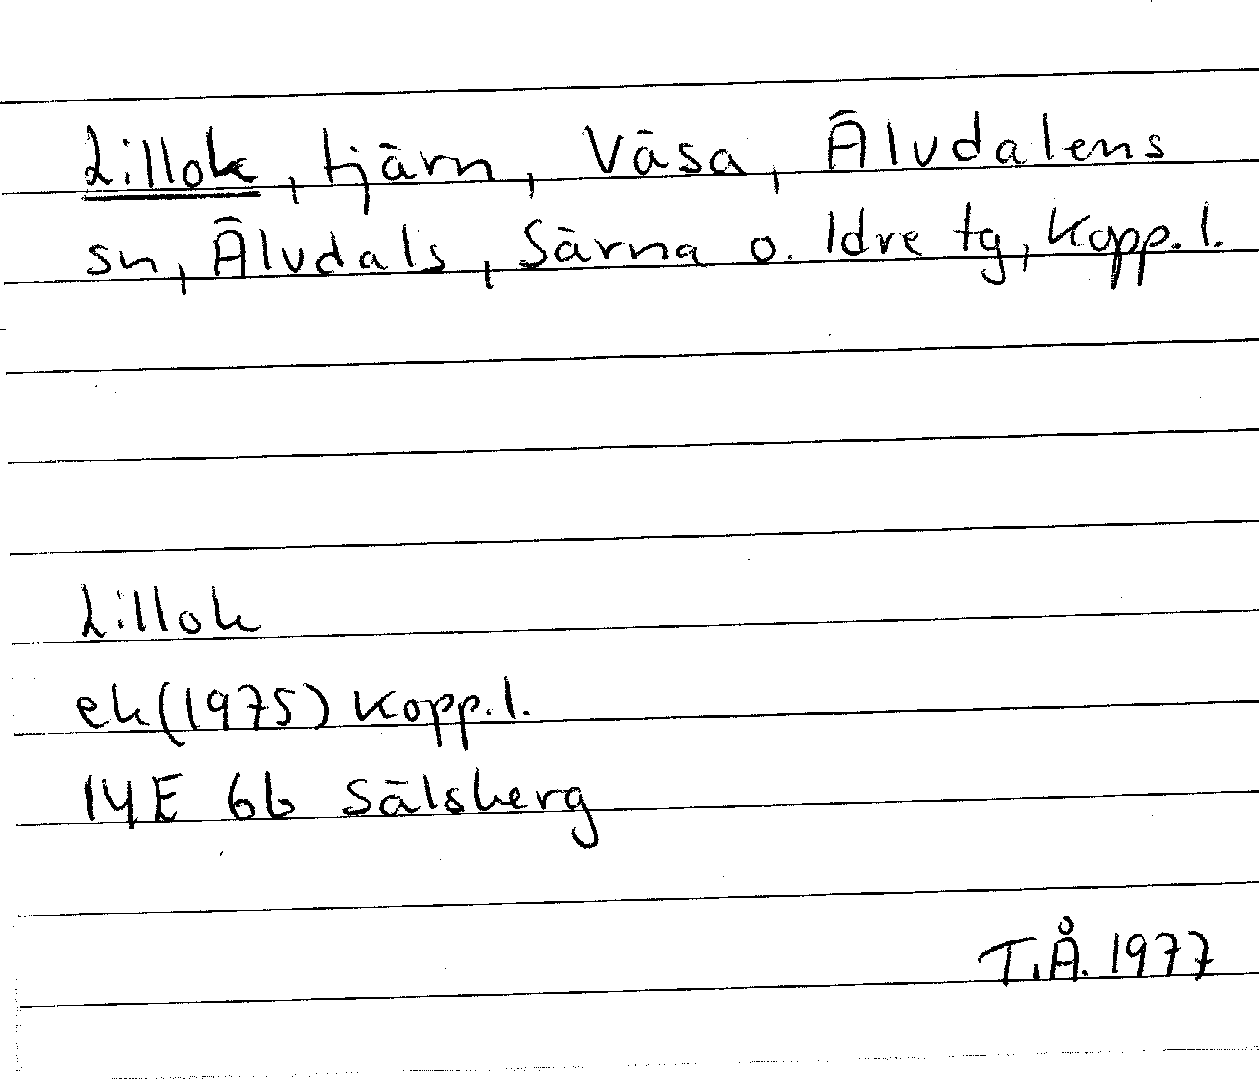 Lillok, tjärn, Väsa, Älvdalens
sn, Älvdals, Särna o. Idre tg, Kopp. l.
Lillok
ek (1975) Kopp. l.
14E 6b Sälsberg
T.Å. 1977